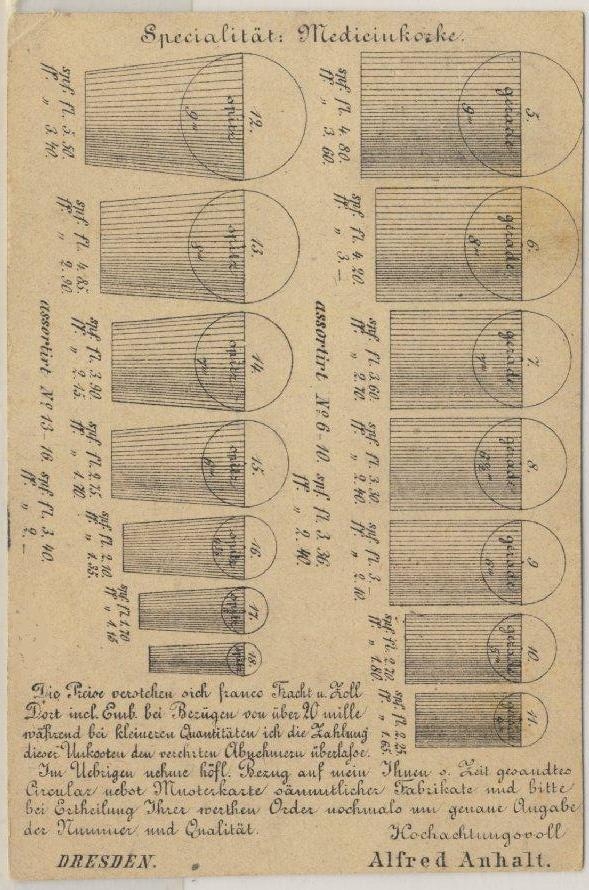 Specialität: Medicinkorke.
12.
spitz
9'''
spf. fl. 5.50.
ff. „ 3.40.
13.
spitz
8'''
spf. fl. 4.85.
ff. „ 2.90.
14.
spitz
7'''
spf. fl. 3.90
ff. „ 2.15.
15.
spitz
6'''
spf. fl. 2.75
ff. „ 1.70
16.
spitz
spf. fl. 2.10.
ff. „ 1.35.
17.
spitz
spf. fl. 1.70
ff. „ 1.15.
18.
spitz
assortirt No 13-16. spf. fl. 3.40.
ff. „ 2.–
5.
gerade
9'''
spf. fl. 4.80.
ff. „ 3.60.
6.
gerade
8'''
spf. fl. 4.20
ff. „ 3.–
7.
gerade
7'''
spf. fl. 3.60.
ff. „ 2.70.
8.
gerade
spf. fl. 3.30.
ff. „ 2.40.
9.
gerade
6'''
spf. fl. 3.–
ff. „ 2.10.
10.
gerade
5'''
spf. fl. 2.70
ff. „ 1.80.
11.
gerade
spf. fl. 2.25
ff. „ 1.65.
assortirt No 6-10. spf. fl. 3.36.
ff. „ 2.40.
Die Preise verstehen sich franco Fracht u. Zoll
Dort incl. Emb. bei Bezügen von über 20 mille
während bei kleineren Quantitäten ich die Zahlung
dieser Unkosten den verehrten Abnehmern überlasse.
Im Uebrigen nehme höfl. Bezug auf mein Ihnen s. Zeit gesandtes
Circular nebst Musterkarte sämmtlicher Fabrikate und bitte
bei Ertheilung Ihrer werthen Order nochmals um genaue Angabe
der Nummer und Qualität.
Hochachtungsvoll
DRESDEN.
Alfred Anhalt.